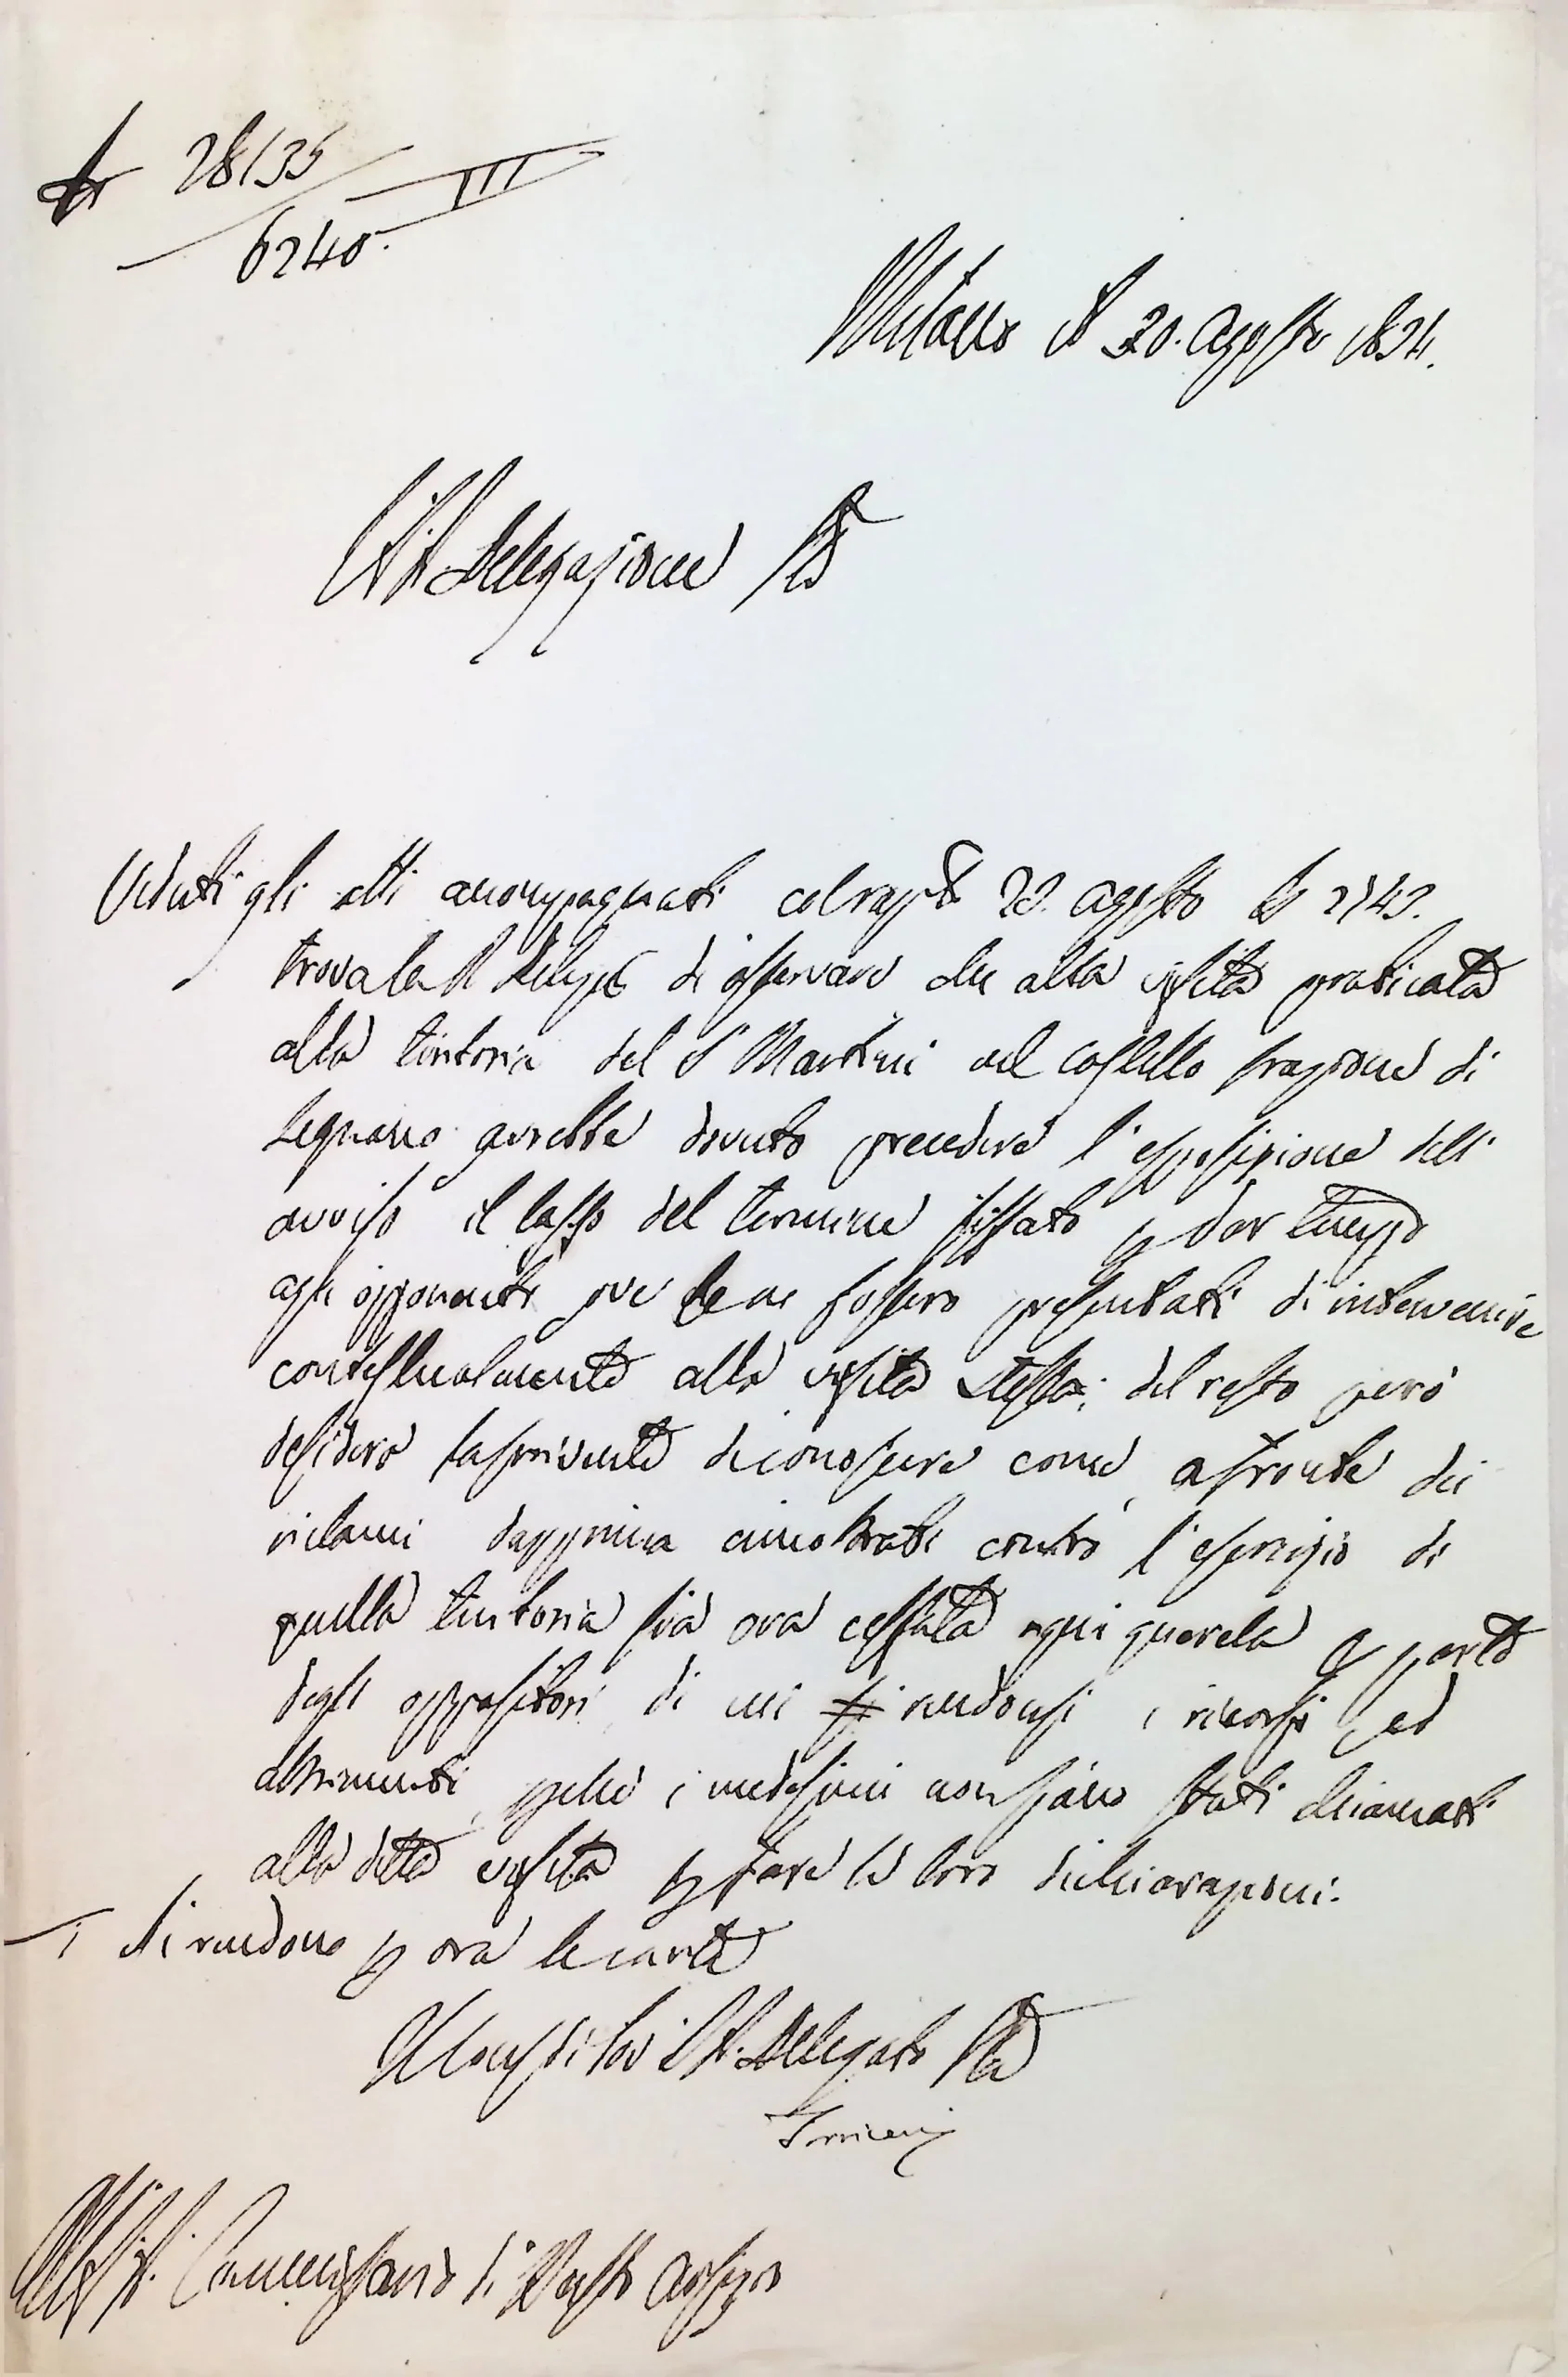 N 28135 III
6240.
Milano il 30. Agosto 1834.
L'I. R. Delegazione Ple
Veduti gli atti accompagnati col rappto 23. Agosto N 2743.
trova la R. Delegne di osservare che alla visita praticata
alla tintoria del Sr Martini nel Castello frazione di
Legnano avrebbe dovuto precedere l'esposizione dell'
avviso il lasso del termine fissato p dar tempo
agli opponenti ove se ne fossero presentati di intervenire
contestualmente alla visita stessa; del resto però
desidera la scrivente di conoscere come a fronte dei
riclami dapprima innoltrati contro l'esercizio di
quella tintoria sia ora cessata ogni querela p parte
degli oppositori di cui si rendonsi i ricorsi ed
altrimenti, pchè i medesimi non siano stati chiamati
alla detta visita p fare le loro dichiarazioni.
Si rendono p ora le carte
Il Consre i. R. Delegato Ple
All'I. R. Commissario di Busto Arsizio